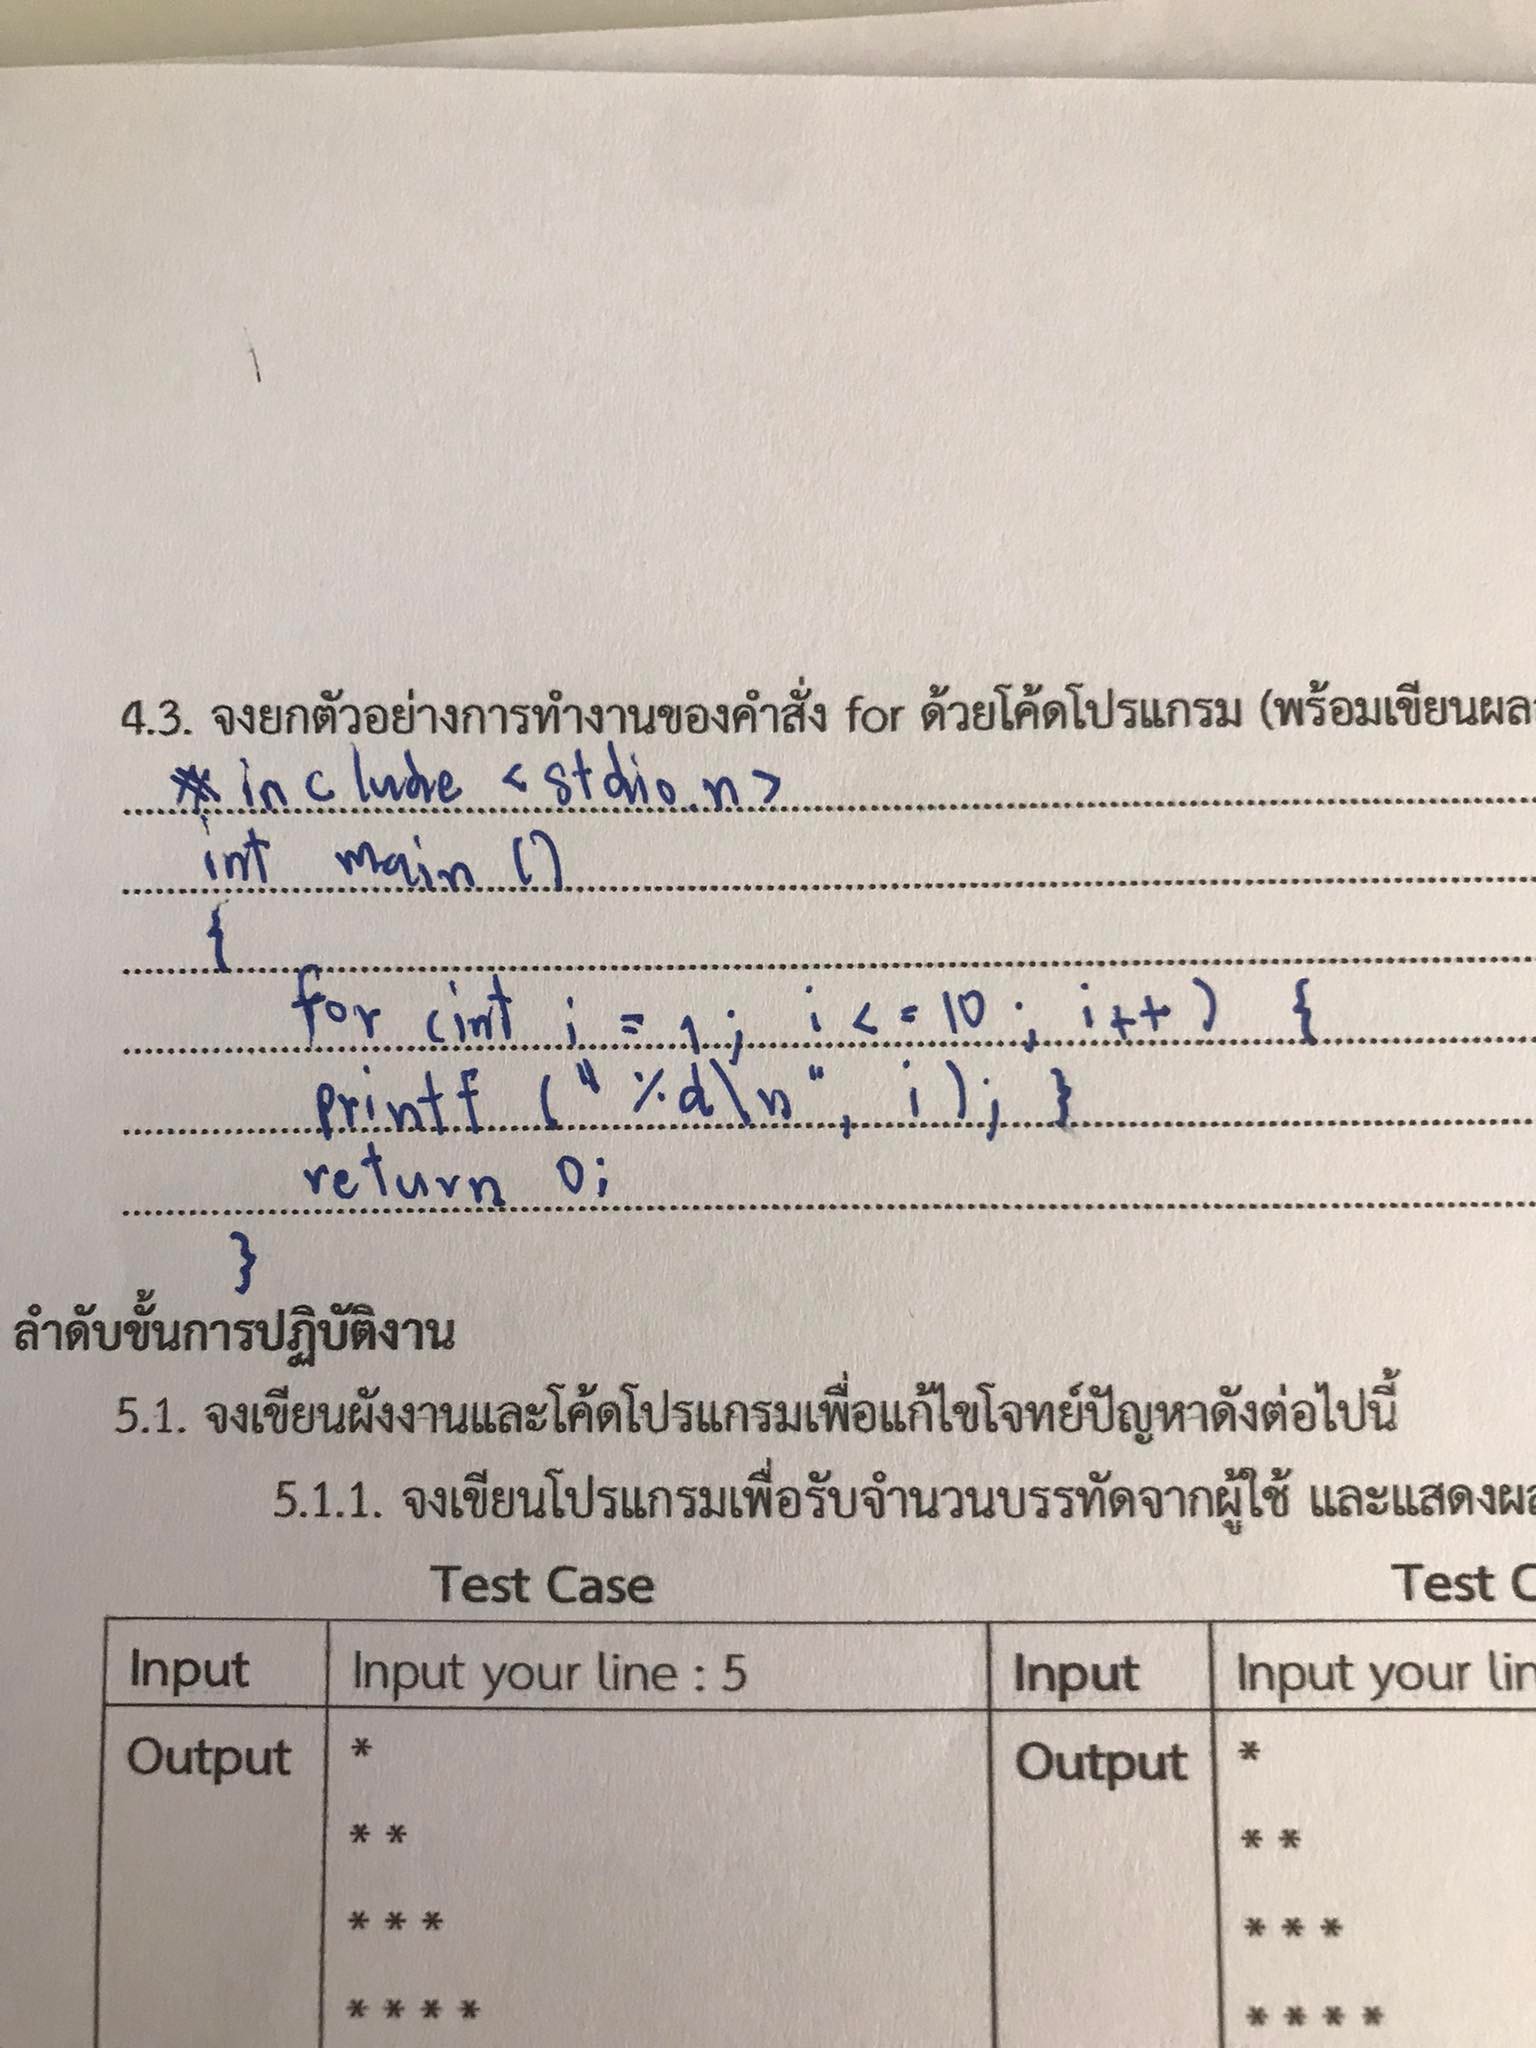 4.3. จงยกตัวอย่างการทำงานของคำสั่ง for ด้วยโค้ดโปรแกรม (พร้อมเขียนผล
#include <stdio.h>
int main ()
{
for (int i = 1; i <= 10; i++) {
printf ("%d\n", i); }
return 0;
}
ลำดับขั้นการปฏิบัติงาน
5.1. จงเขียนผังงานและโค้ดโปรแกรมเพื่อแก้ไขโจทย์ปัญหาดังต่อไปนี้
5.1.1. จงเขียนโปรแกรมเพื่อรับจำนวนบรรทัดจากผู้ใช้ และแสดงผล
Test Case Test C
Input Input your line : 5 Input Input your lin
Output * Output *
* * * *
* * * * * *
* * * * * * * *